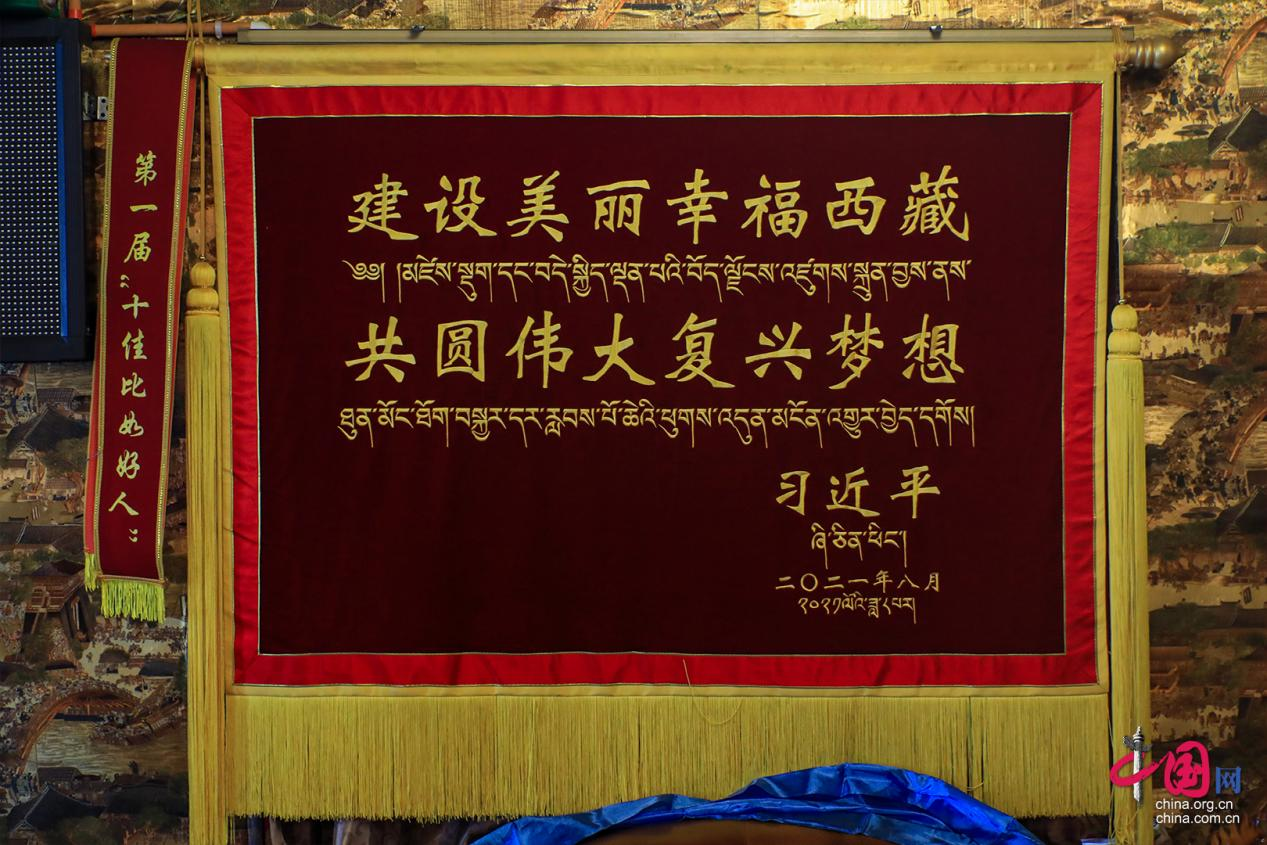 建设美丽幸福西藏
༄༅། །མཛེས་སྡུག་དང་བདེ་སྐྱིད་ལྡན་པའི་བོད་ལྗོངས་འཛུགས་སྐྲུན་བྱས་ནས་
共圆伟大复兴梦想
ཐུན་མོང་ཐོག་བསྐྱར་དར་རླབས་པོ་ཆེའི་ཕུགས་འདུན་མངོན་འགྱུར་བྱེད་དགོས།
习近平
ཞི་ཅིན་ཕིང་།
二〇二一年八月
༢༠༢༡ལོའི་ཟླ༨པར།
第一届“十佳比如好人”
中国网
china.org.cn
china.com.cn